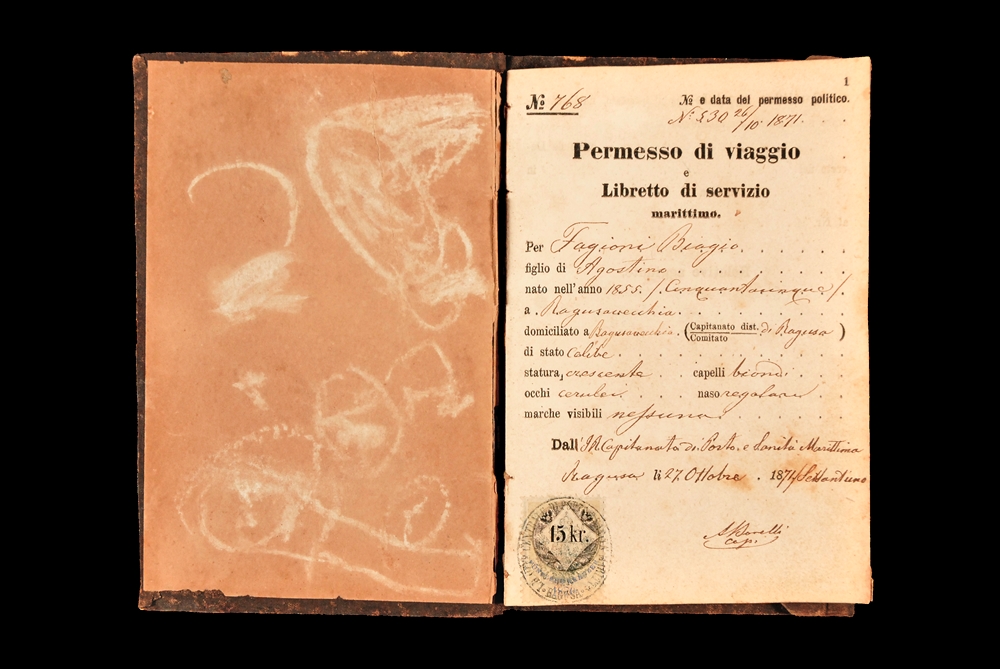 1
№ 768
№ e data del permesso politico.
26/10 1871.
Permesso di viaggio
e
Libretto di servizio
marittimo.
Per Fagioni Biagio
figlio di Agostino
nato nell'anno 1855. /Cinquantacinque/.
a Ragusavecchia
domiciliato a Ragusavecchia. (Capitanato dist. di Ragusa)
Comitato
di stato celibe
statura, crescente capelli biondi
occhi cerulei naso regolare
marche visibili nessuna
Dall' I. R. Capitanato di Porto e Sanità Marittima
Ragusa li 27. Ottobre. 1871/Settantuno
15 kr.
RAGUSA
Cap.